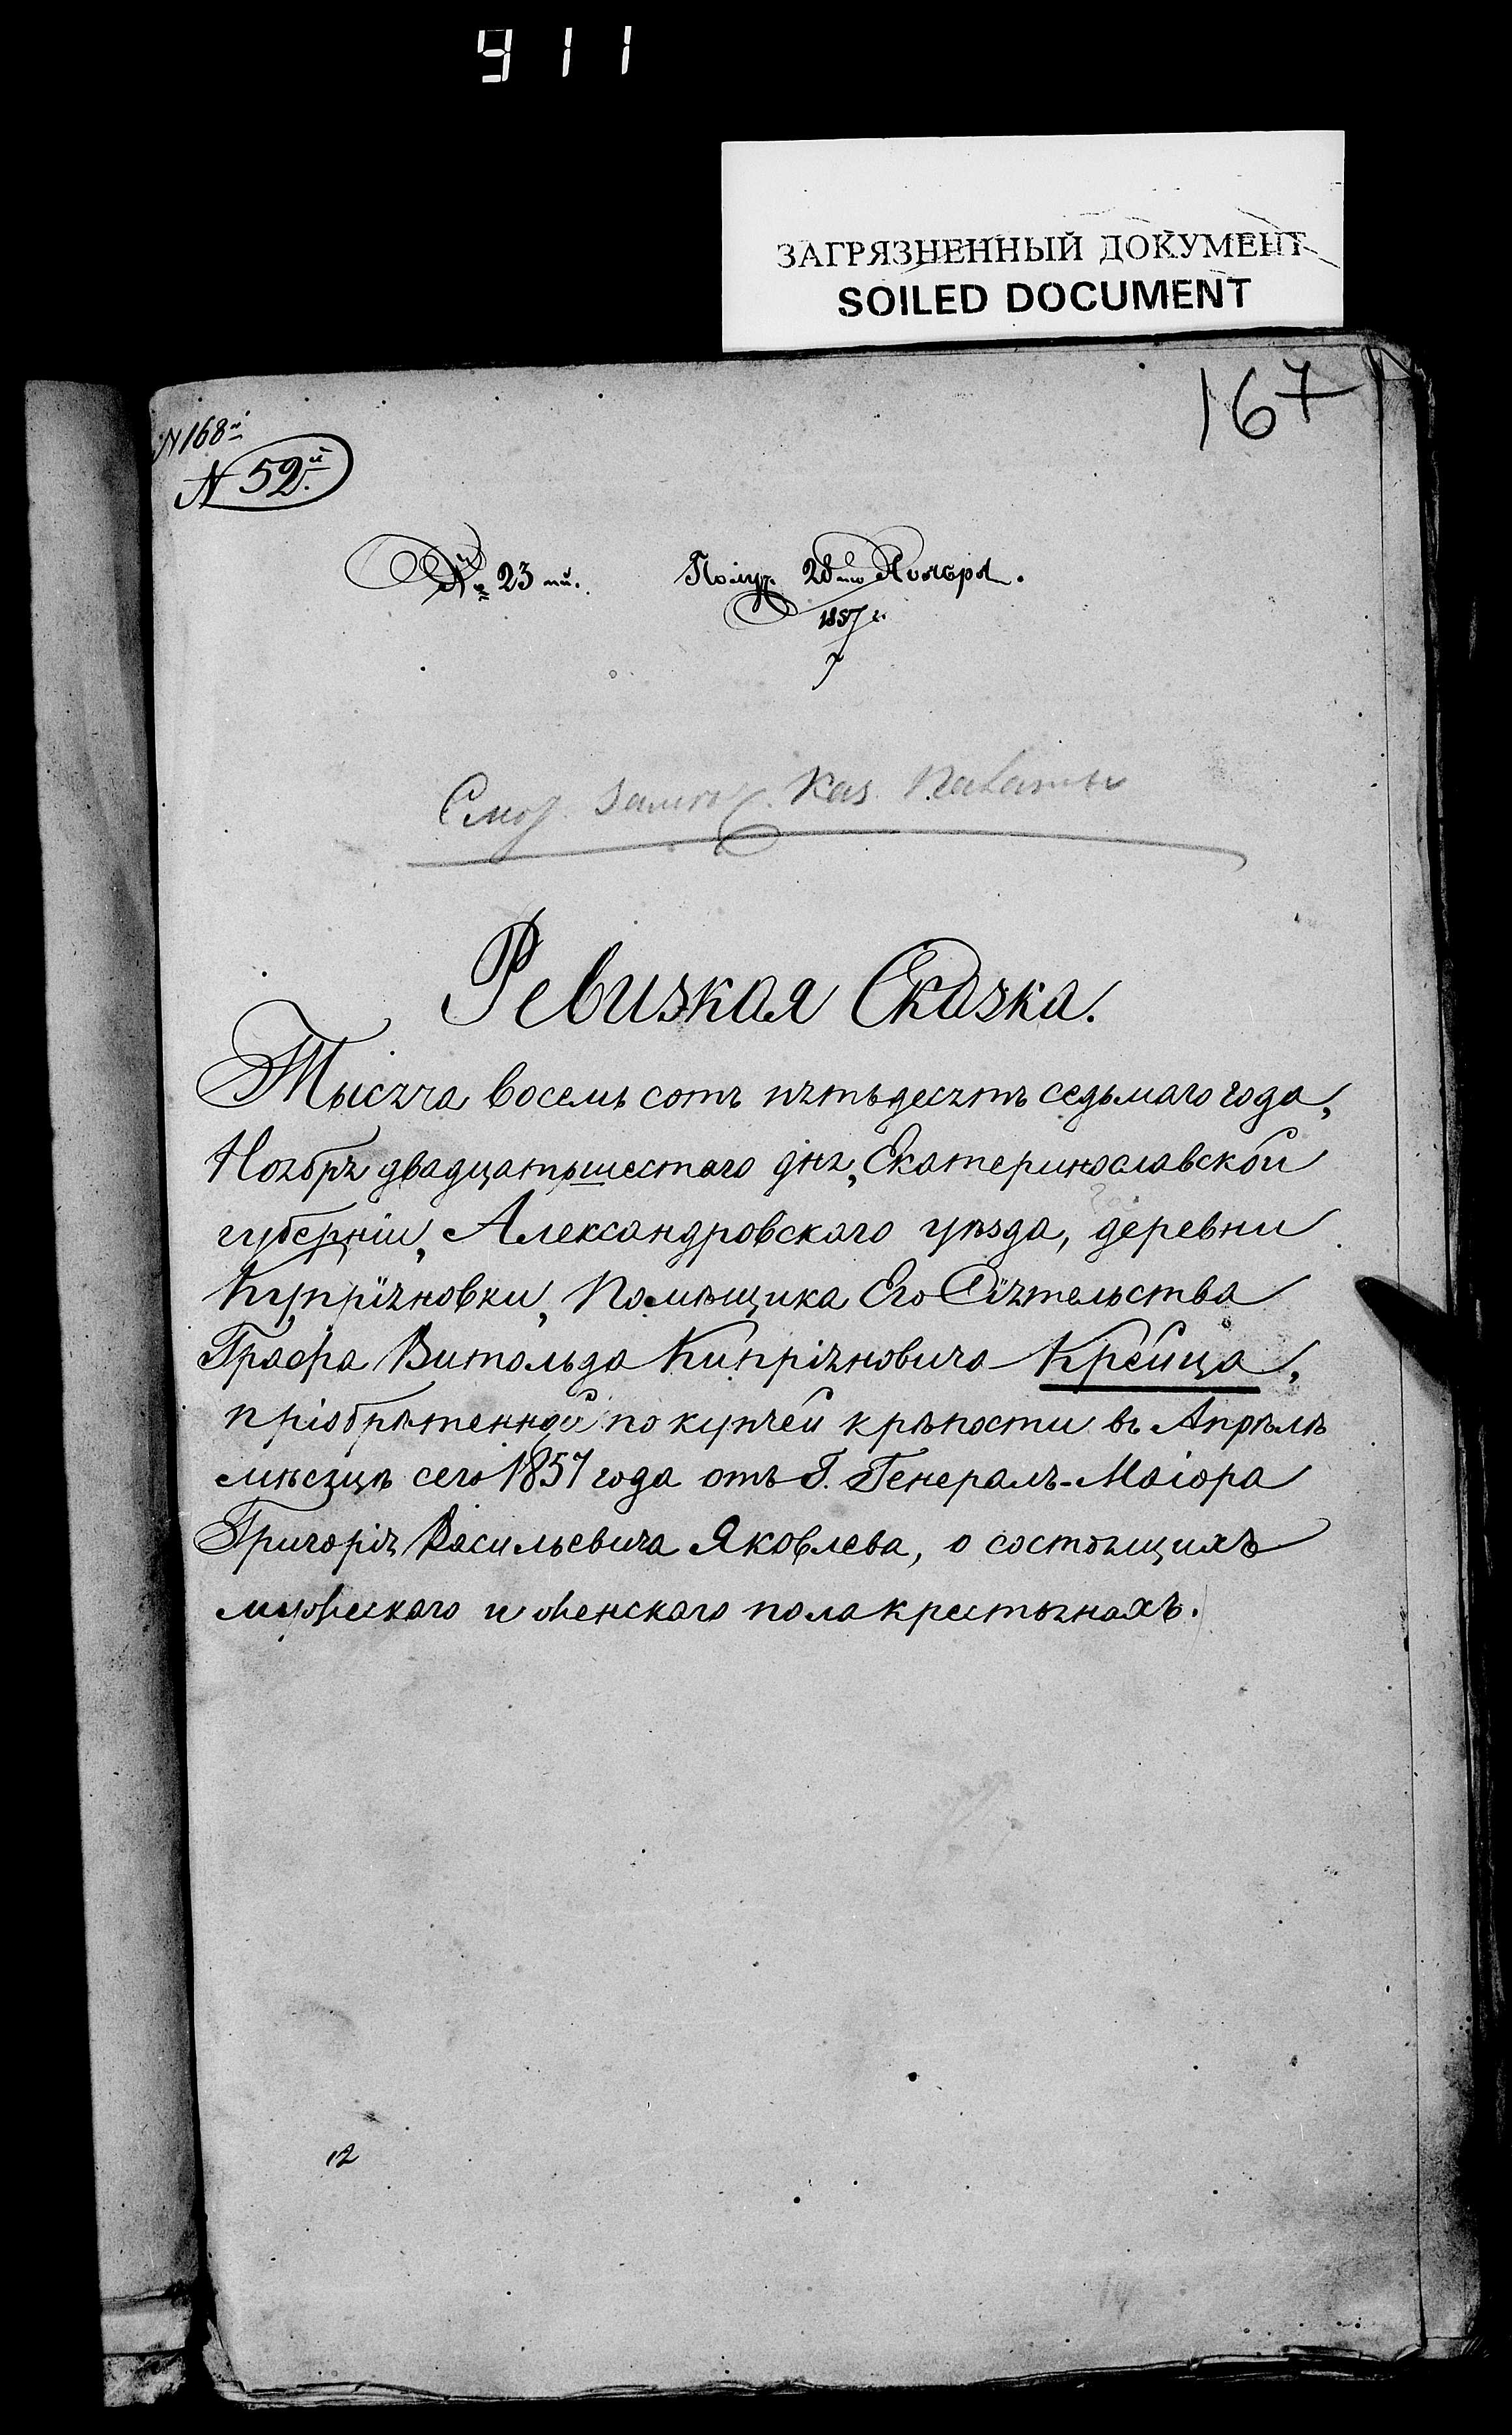 911
ЗАГРЯЗНЕННЫЙ ДОКУМЕНТ
SOILED DOCUMENT
167
N 168й
N 52й.
№ 23ий. Получ. 28го Ноября.
1857 г.
Каз. Палаты
Ревизкая Сказка.
Тысяча восемь сотъ пятьдесятъ седьмаго года,
Ноября двадцатьшестаго дня, Екатеринославской
губерніи, Александровского уѣзда, деревни
Купріяновки, Помѣщика Его Сіятельства
Графа Витольда Кипріяновича Крейца,
пріобрѣтенной по купчей крѣпости въ Апрѣлѣ
мѣсяцѣ сего 1857 года отъ Г. Генералъ-Маіора
Григорія Васильевича Яковлева, о состоящихъ
мужескаго и женскаго пола крестьянахъ.
12